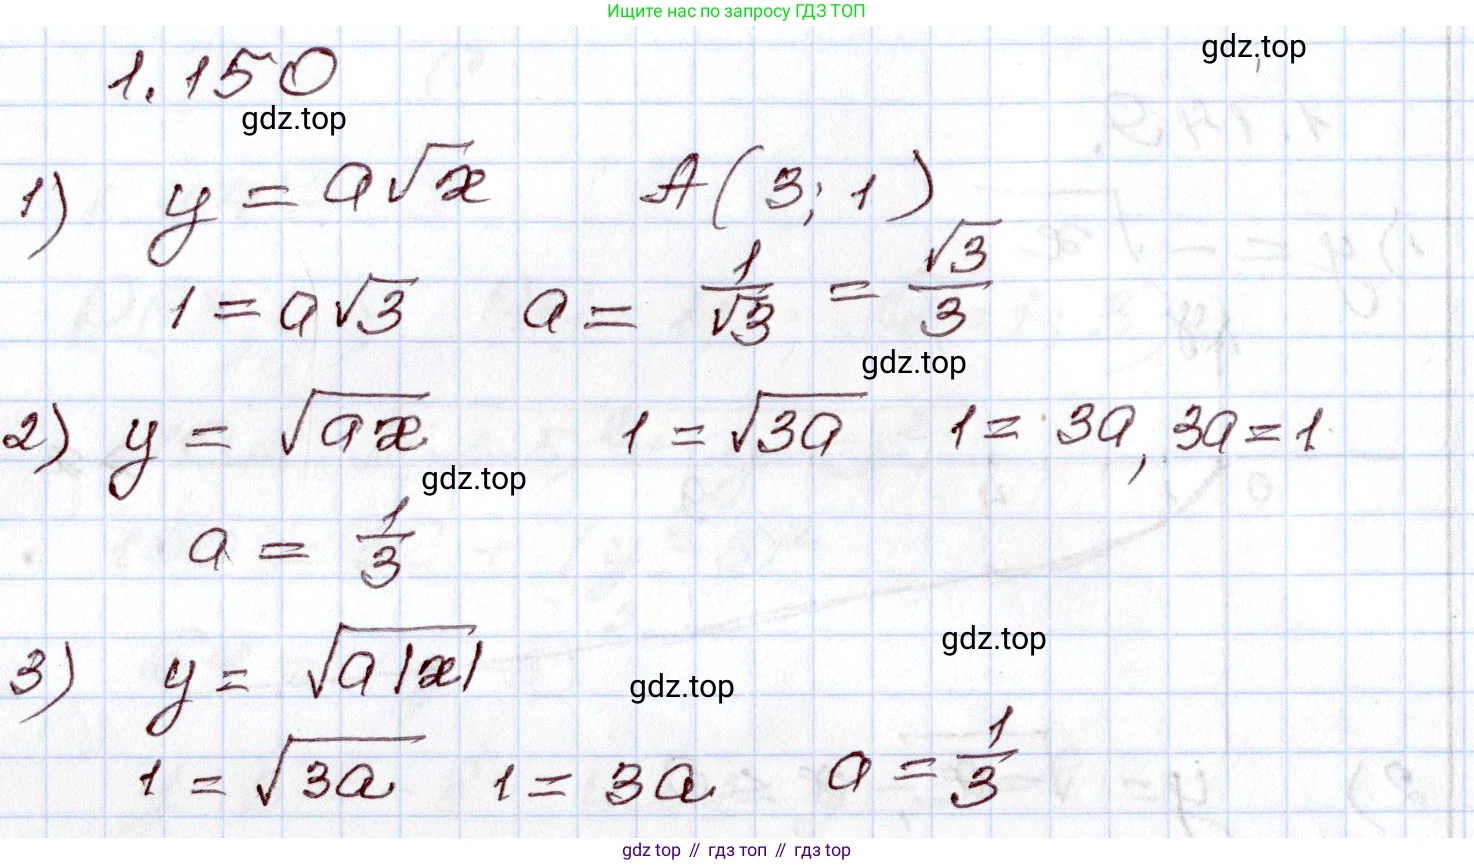 Ищите нас по запросу ГДЗ ТОП
gdz.top
1.150
gdz.top
1) y = a√x A(3; 1)
1 = a√3 a = 1/√3 = √3/3
gdz.top
2) y = √(ax) 1 = √(3a) 1 = 3a, 3a = 1
gdz.top
a = 1/3
gdz.top
3) y = √(a|x|)
gdz.top
1 = √(3a) 1 = 3a a = 1/3
gdz.top // гдз топ // гдз top